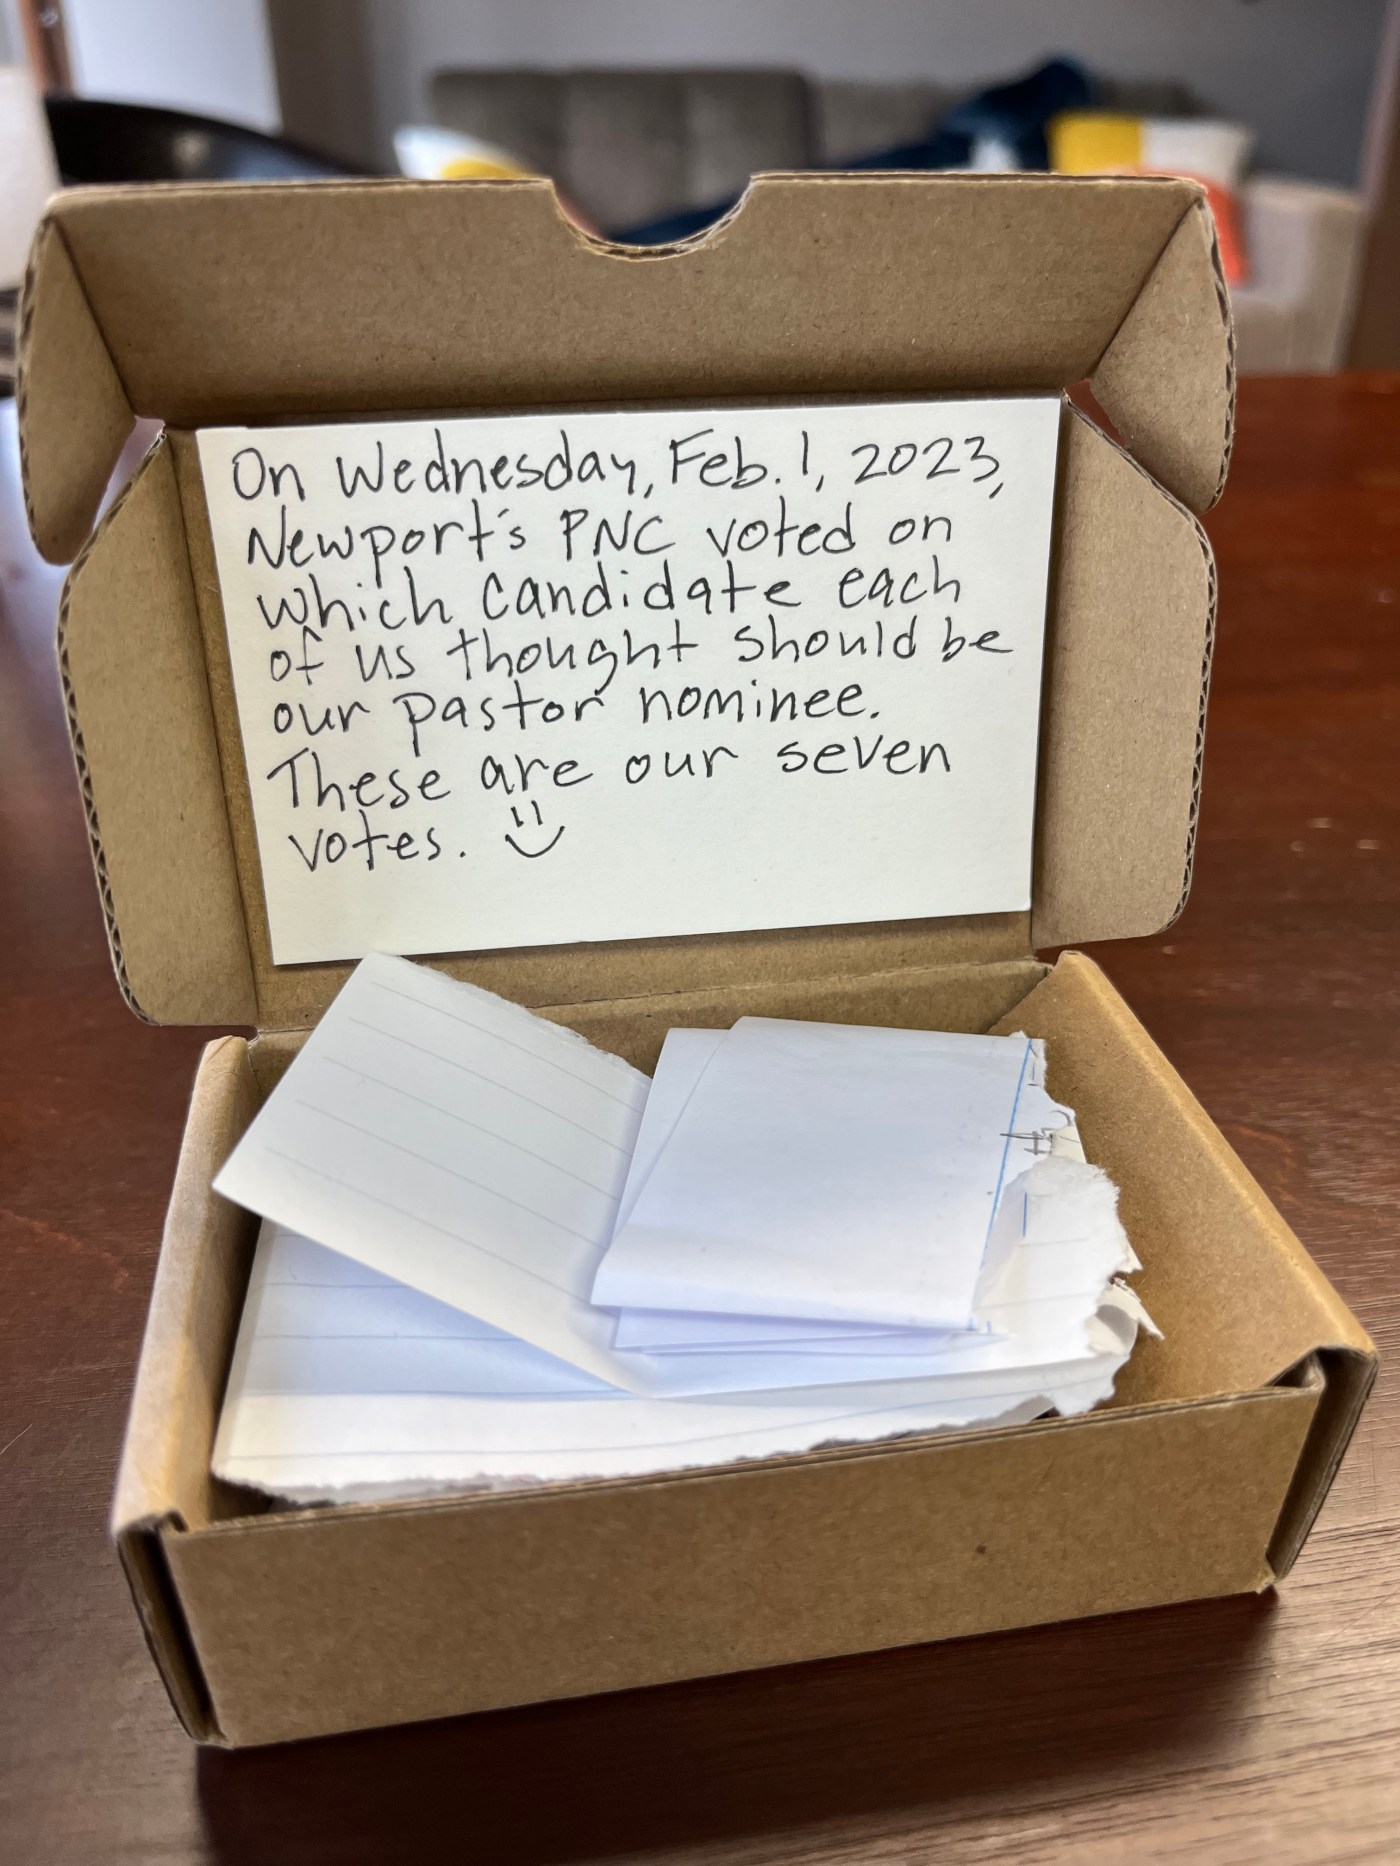 On Wednesday, Feb. 1, 2023,
Newport's PNC voted on
which candidate each
of us thought should be
our pastor nominee.
These are our seven
votes.